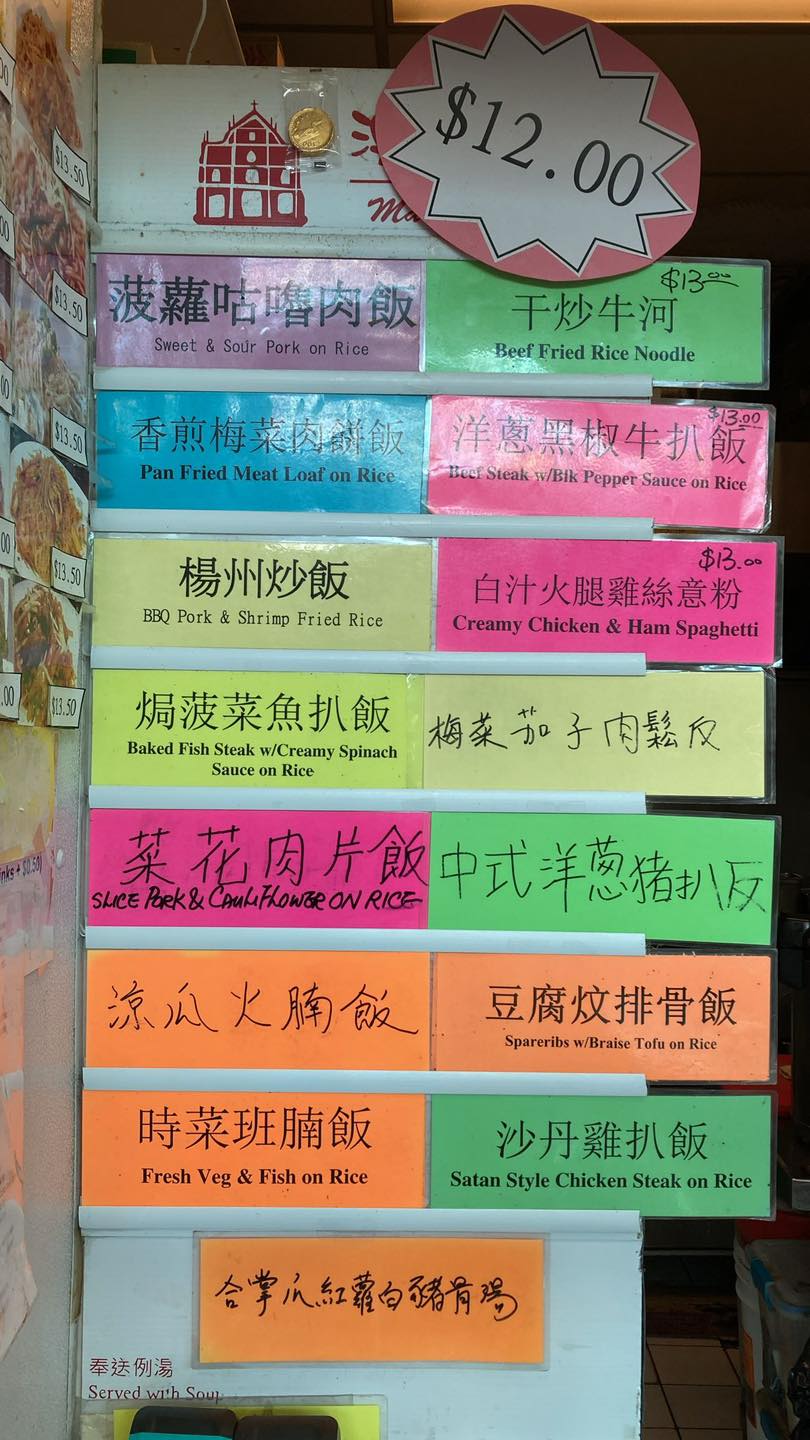 $12.00
菠蘿咕嚕肉飯
Sweet & Sour Pork on Rice
$13.00
干炒牛河
Beef Fried Rice Noodle
香煎梅菜肉餅飯
Pan Fried Meat Loaf on Rice
$13.00
洋蔥黑椒牛扒飯
Beef Steak w/Blk Pepper Sauce on Rice
楊州炒飯
BBQ Pork & Shrimp Fried Rice
$13.00
白汁火腿雞絲意粉
Creamy Chicken & Ham Spaghetti
焗菠菜魚扒飯
Baked Fish Steak w/Creamy Spinach
Sauce on Rice
梅菜茄子肉鬆反
菜花肉片飯
SLICE PORK & CAULIFLOWER ON RICE
中式洋葱猪扒反
涼瓜火腩飯
豆腐炆排骨飯
Spareribs w/Braise Tofu on Rice
時菜班腩飯
Fresh Veg & Fish on Rice
沙丹雞扒飯
Satan Style Chicken Steak on Rice
合掌瓜紅蘿白豬骨湯
奉送例湯
Served with Soup
$13.50
$13.50
$13.50
$13.50
$13.50